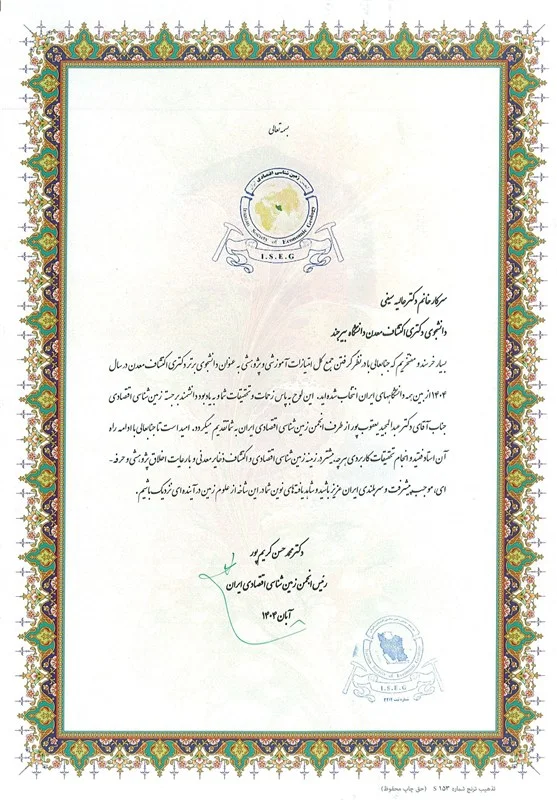 بسمه تعالی
انجمن زمین شناسی اقتصادی ایران
Iranian Society of Economic Geology
I.S.E.G
سرکار خانم دکتر عالیه سیفی
دانشجوی دکتری اکتشاف معدن دانشگاه بیرجند
بسیار خرسند و مفتخریم که جنابعالی با در نظر گرفتن جمع کل امتیازات آموزشی و پژوهشی به عنوان دانشجوی برتر دکتری اکتشاف معدن در سال
۱۴۰۴ از بین همه دانشگاههای ایران انتخاب شده اید. این لوح به پاس زحمات و تحقیقات شما و به یادبود دانشمند برجسته زمین شناسی اقتصادی
جناب آقای دکتر عبدالمجید یعقوب پور از طرف انجمن زمین شناسی اقتصادی ایران به شما تقدیم میگردد. امید است تا جنابعالی با ادامه راه
آن استاد فقید و انجام تحقیقات کاربردی هر چه بیشتر در زمینه زمین شناسی اقتصادی و اکتشاف ذخایر معدنی و با رعایت اخلاق پژوهشی و حرفه-
ای، موجب پیشرفت و سربلندی ایران عزیز باشید و شاهد یافته های نوین شما در این شاخه از علوم زمین در آینده ای نزدیک باشیم.
دکتر محمد حسن کریم پور
رئیس انجمن زمین شناسی اقتصادی ایران
آبان ۱۴۰۴
I.S.E.G
تذهیب ترنج شماره ۱۵۳ S (حق چاپ محفوظ)